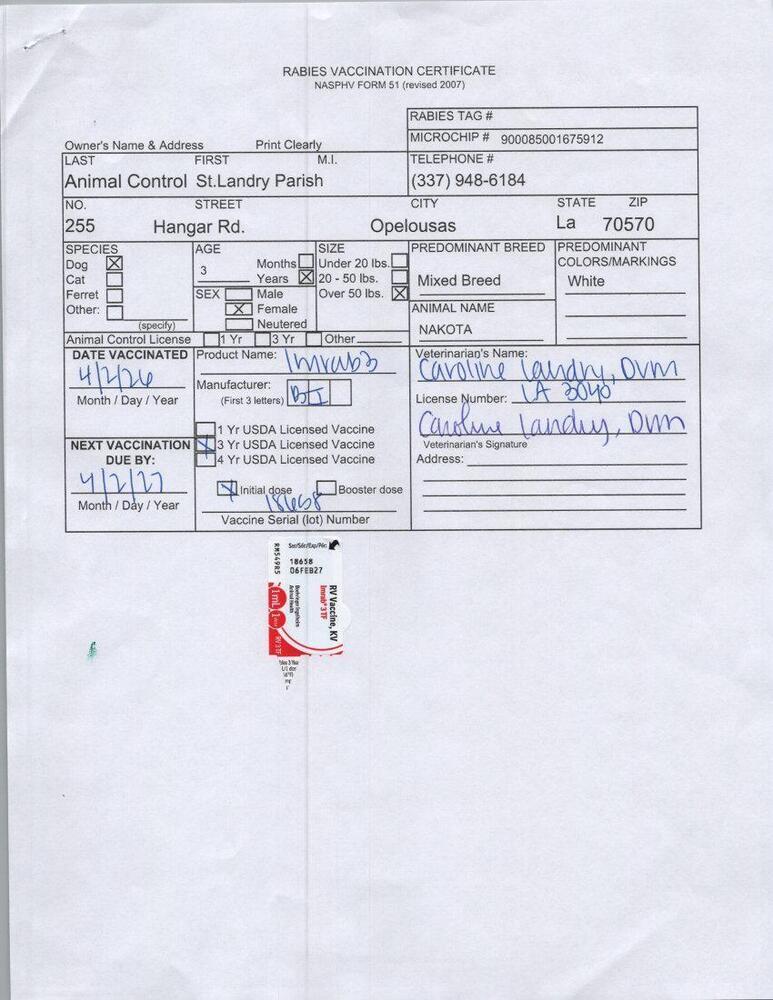 RABIES VACCINATION CERTIFICATE
NASPHV FORM 51 (revised 2007)
RABIES TAG #
Owner's Name & Address Print Clearly
MICROCHIP # 900085001675912
LAST FIRST M.I. TELEPHONE #
Animal Control St.Landry Parish (337) 948-6184
NO. STREET CITY STATE ZIP
255 Hangar Rd. Opelousas La 70570
SPECIES AGE SIZE PREDOMINANT BREED PREDOMINANT
COLORS/MARKINGS
Dog 3 Months Under 20 lbs.
Cat Years 20 - 50 lbs. Mixed Breed White
Ferret SEX Male Over 50 lbs.
Other: Female ANIMAL NAME
(specify) Neutered NAKOTA
Animal Control License 1 Yr 3 Yr Other
DATE VACCINATED Product Name: Imrab3 Veterinarian's Name:
4/2/26 Caroline Landry, DVM
Month / Day / Year Manufacturer:
(First 3 letters) BI License Number: LA 3040
1 Yr USDA Licensed Vaccine Caroline Landry, DVM
NEXT VACCINATION 3 Yr USDA Licensed Vaccine Veterinarian's Signature
DUE BY: 4 Yr USDA Licensed Vaccine Address:
4/2/27
Month / Day / Year Initial dose Booster dose
18658
Vaccine Serial (lot) Number
Ser/Sér/Exp/Pér:
18658
06FEB27
RM549R5
RV Vaccine, KV
Imrab® 3 TF
Boehringer Ingelheim
Animal Health
1 mL
RV3TF